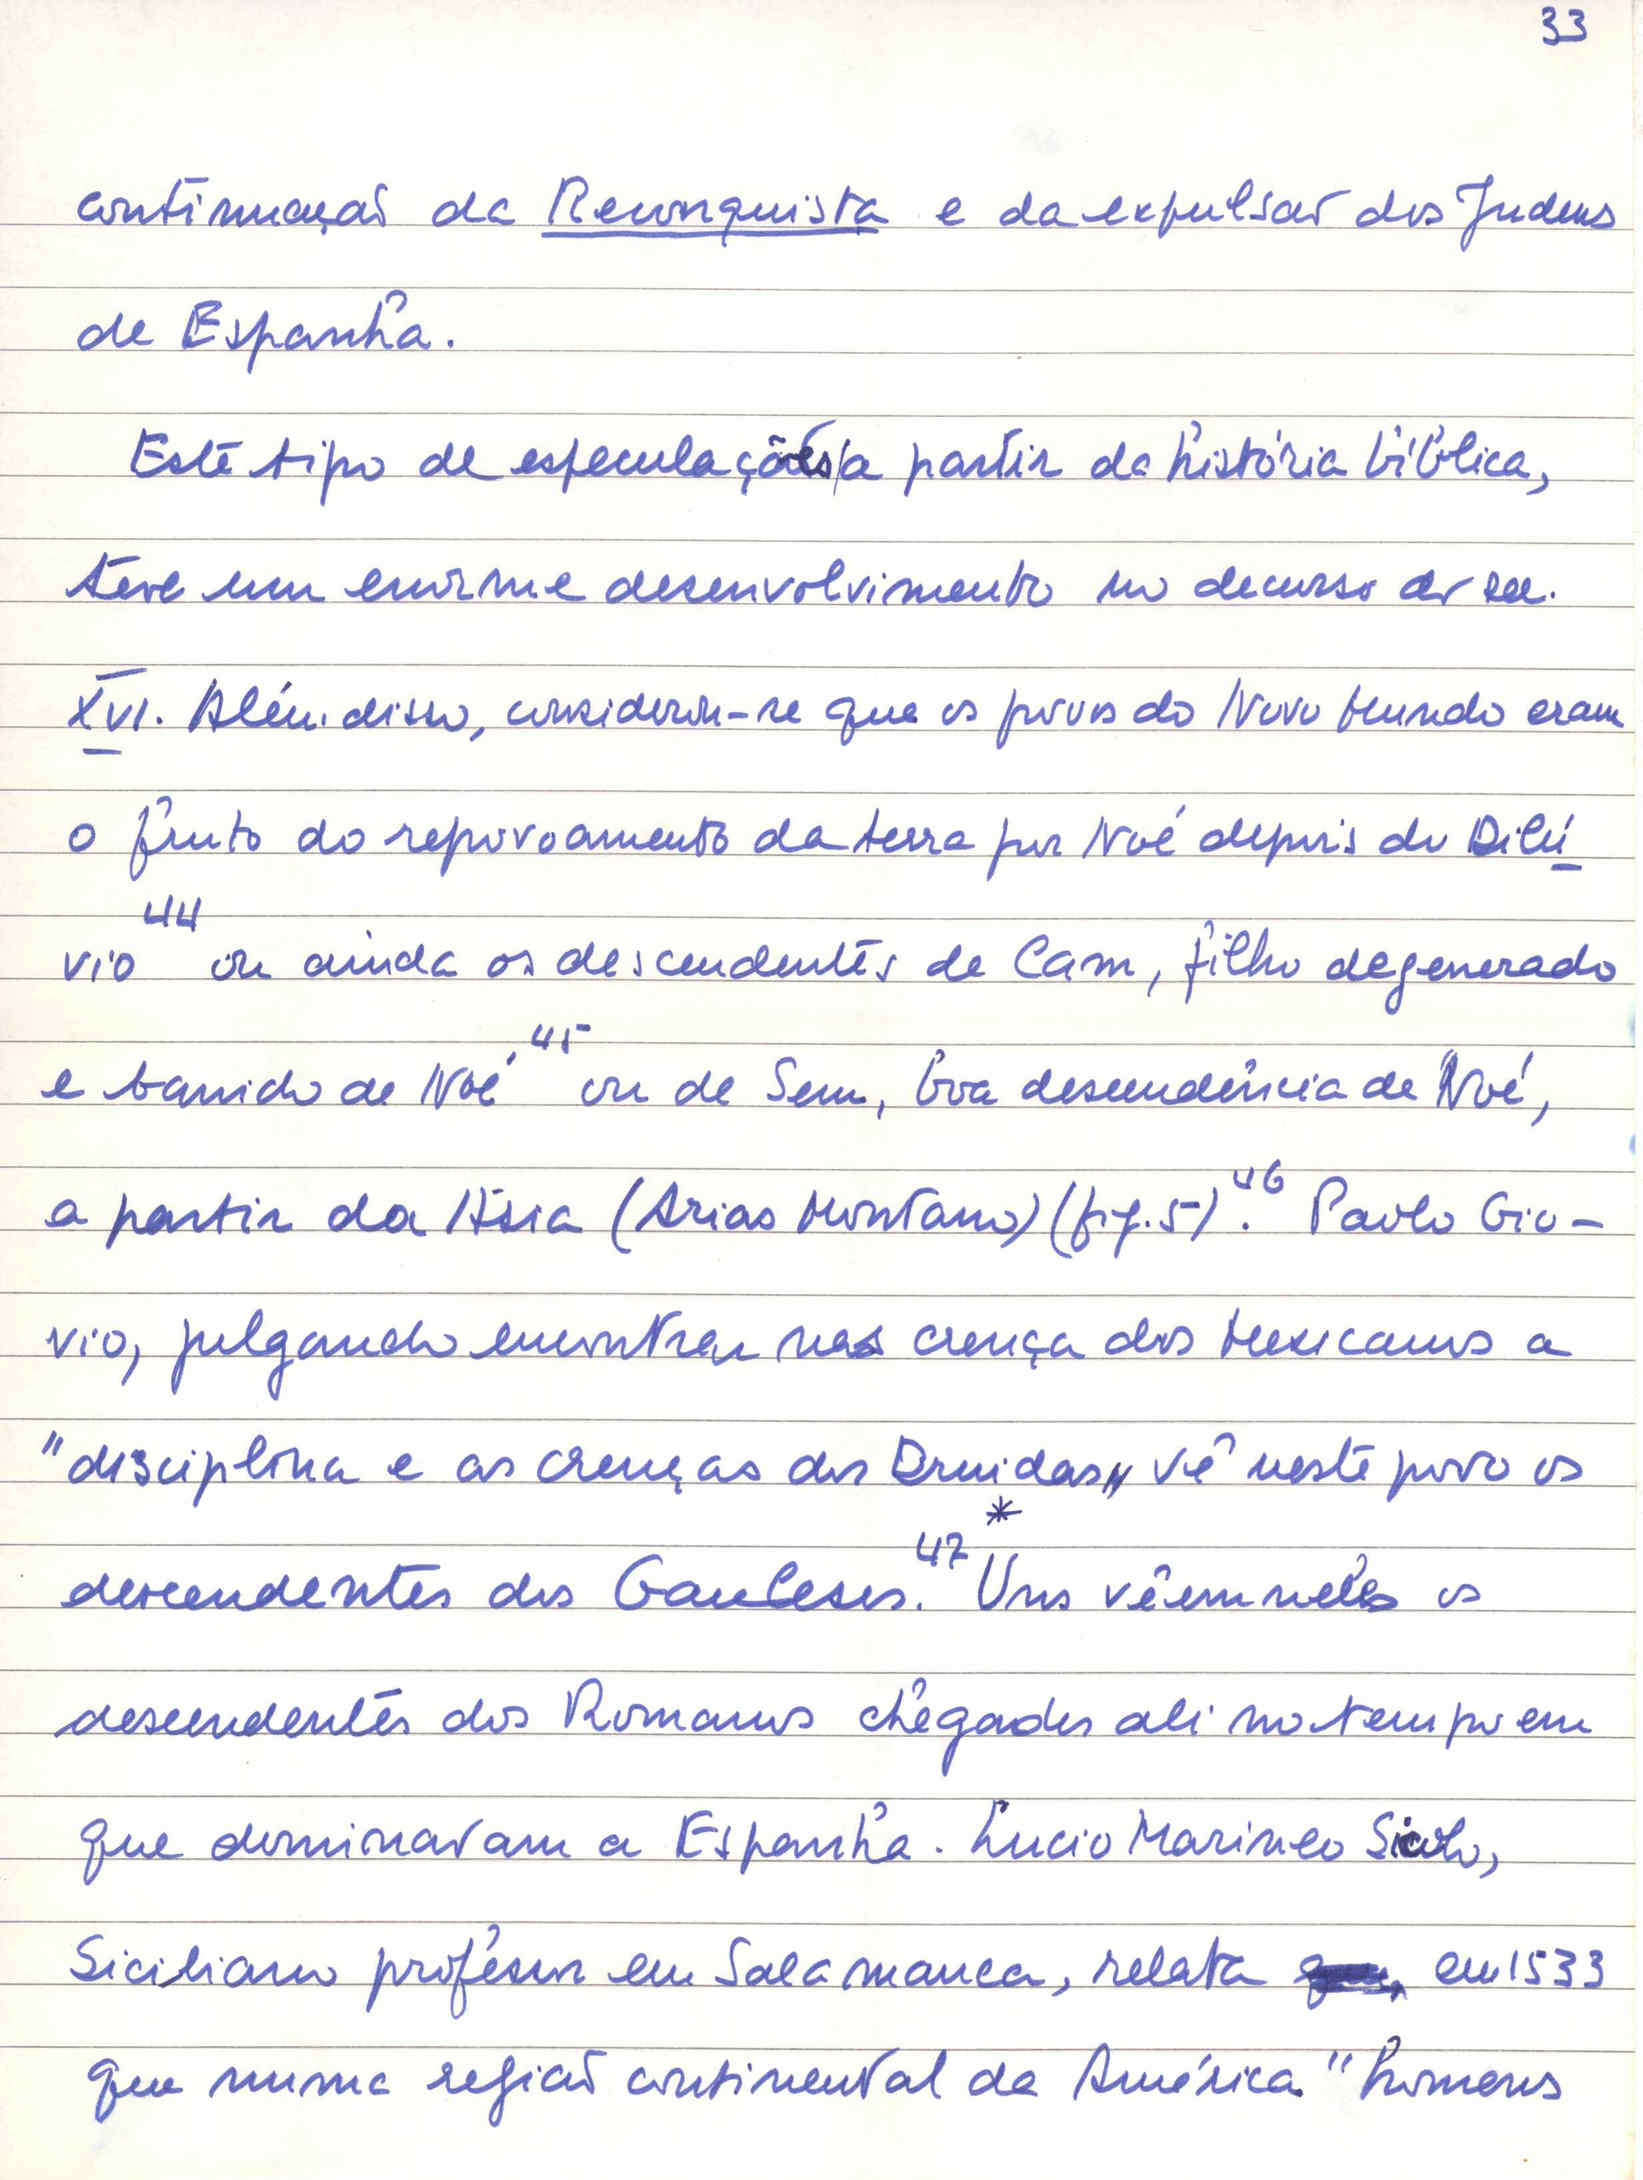 33
continuação da Reconquista e da expulsão dos Judeus
de Espanha.
Este tipo de especulações a partir da história bíblica,
teve um enorme desenvolvimento no decurso do sec.
XVI. Além disso, considerou-se que os povos do Novo Mundo eram
o fruto do repovoamento da terra por Noé depois do Dilú
vio44 ou ainda os descendentes de Cam, filho degenerado
e banido de Noé,45 ou de Sem, boa descendência de Noé,
a partir da Ásia (Arias Montano) (fig. 5).46 Paolo Gio-
vio, julgando encontrar nas crença dos Mexicanos a
"disciplina e as crenças dos Druidas" vê neste povo os
descendentes dos Gauleses.47* Uns vêem neles os
descendentes dos Romanos chegados ali no tempo em
que dominavam a Espanha. Lucio Marineo Siculo,
Siciliano professor em Salamanca, relata em 1533
que numa região continental da América "homens